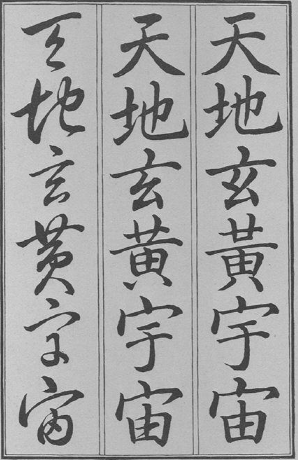 天地玄黃宇宙
天地玄黄宇宙
天地玄黄宇宙